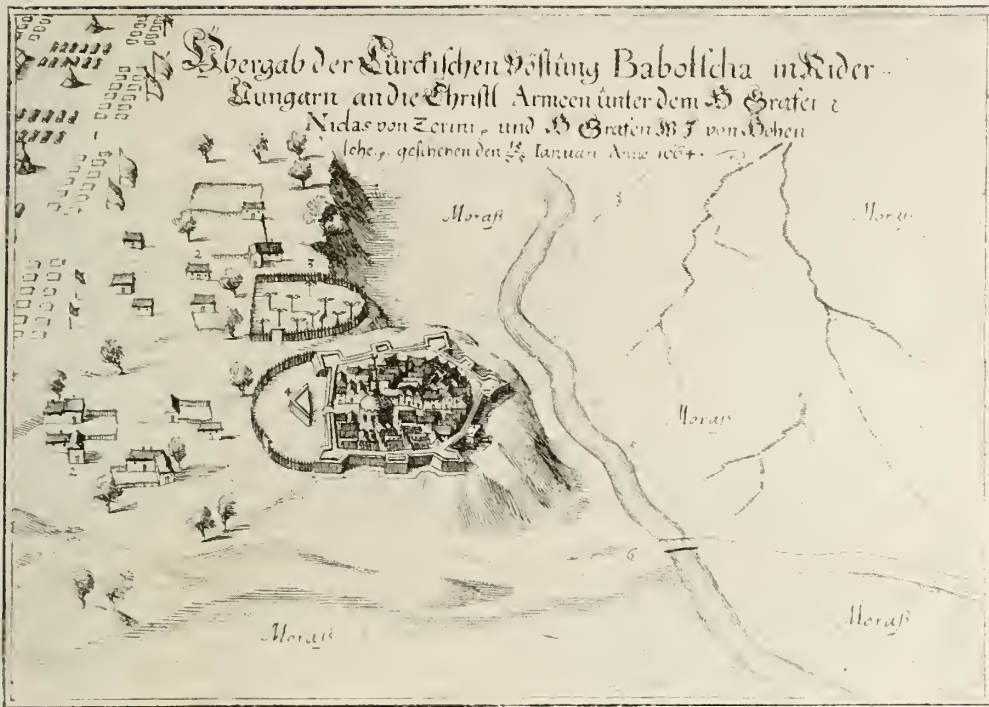 Übergab der Türckischen Vöstung Baboltscha in Nider-
Hungarn an die Christl Armeen unter dem H Grafen
Niclas von Zerini, und H Grafen W J von Hohen
lohe, geschehen den Ianuari Anno 1664.
Moraß
Moraß
2
3
4
Moraß
2
5
6
Moraß
Moraß